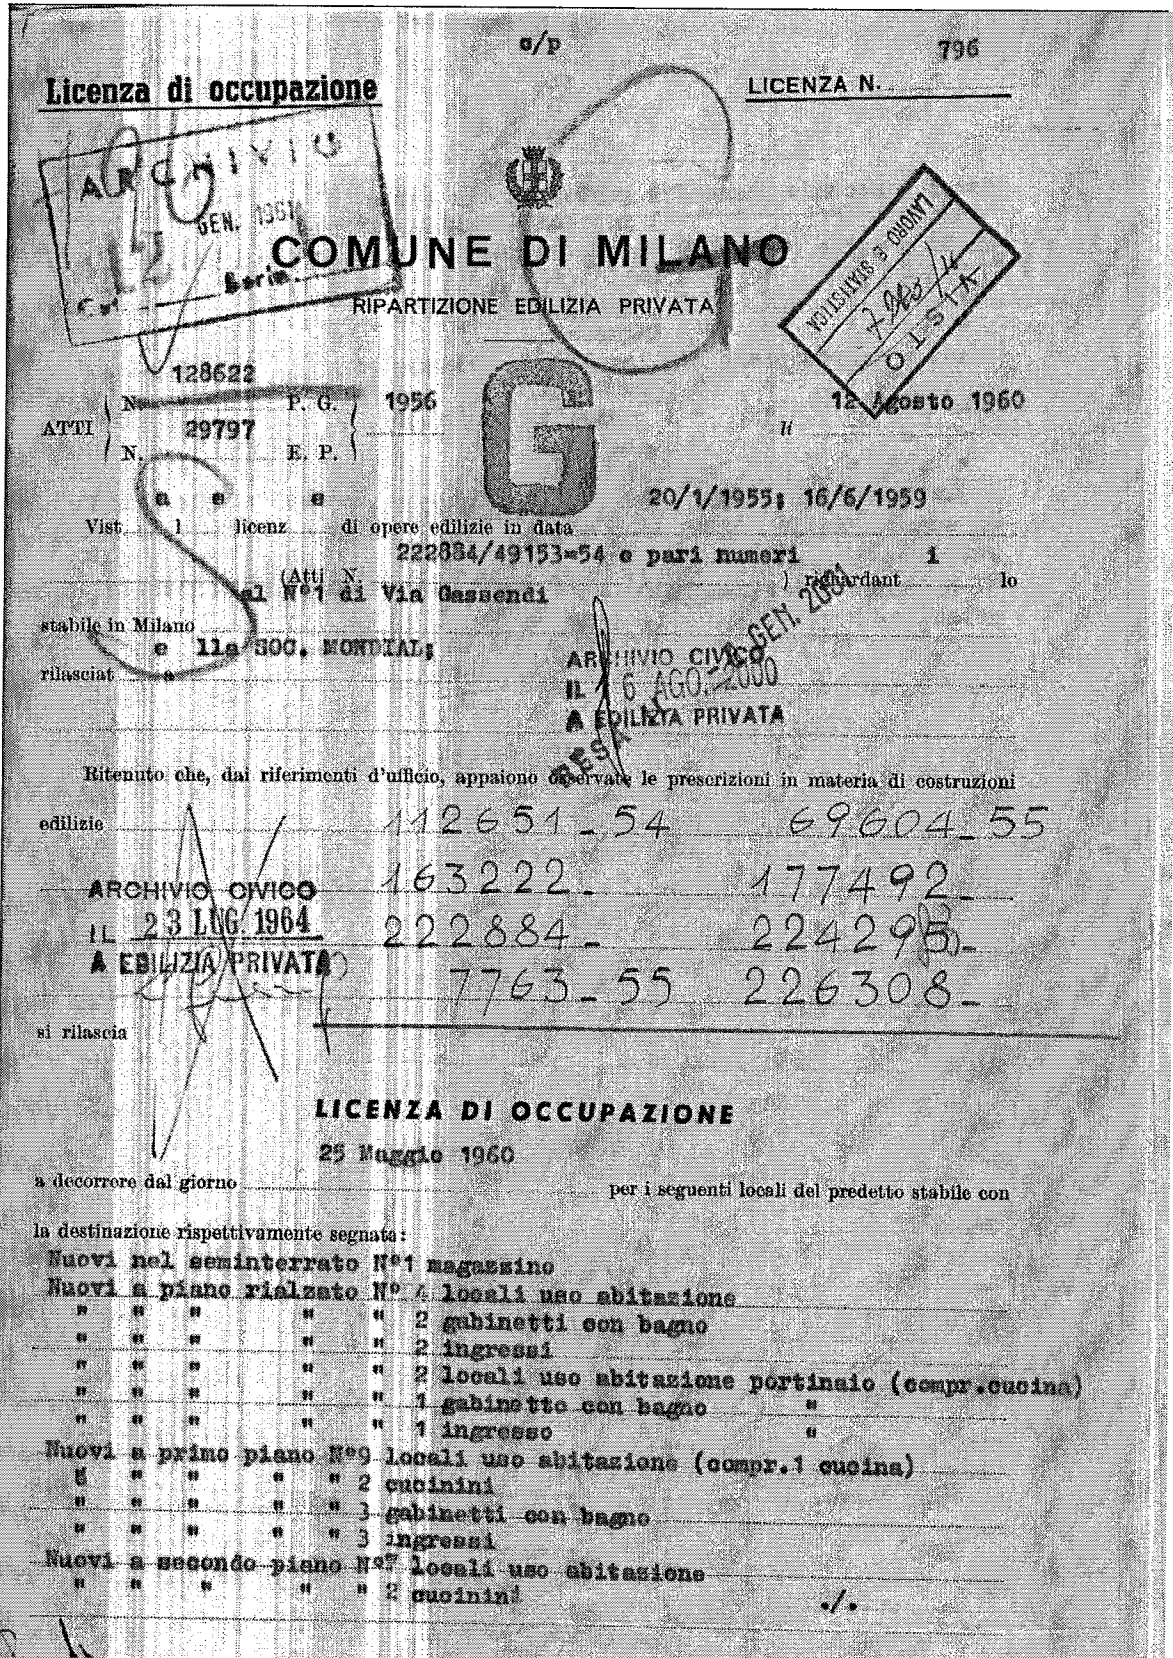 a/p
796
Licenza di occupazione
LICENZA N.
ARCHIVIO
GEN. 1961
Cat. Serie
COMUNE DI MILANO
RIPARTIZIONE EDILIZIA PRIVATA
LAVORO E STATISTICA
VISTO
G
128622
N. P. G. 1956
12 Agosto 1960
ATTI
li
29797
N. E. P.
a e e 20/1/1955; 16/6/1959
Vist l licenz di opere edilizie in data
222884/49153=54 e pari numeri i
(Atti N. ) riguardant lo
al N°1 di Via Gassendi
stabile in Milano
e lla SOC. MONDIAL;
rilasciat a
ARCHIVIO CIVICO
IL 6 AGO. 2000
A EDILIZIA PRIVATA
RESA IL GEN. 2001
Ritenuto che, dai riferimenti d'ufficio, appaiono osservate le prescrizioni in materia di costruzioni
edilizie 112651-54 69604-55
163222- 177492-
ARCHIVIO CIVICO
IL 23 LUG. 1964
222884-
A EDILIZIA PRIVATA
7763-55 226308-
si rilascia
LICENZA DI OCCUPAZIONE
25 Maggio 1960
a decorrere dal giorno per i seguenti locali del predetto stabile con
la destinazione rispettivamente segnata:
Nuovi nel seminterrato N°1 magazzino
Nuovi a piano rialzato N° 4 locali uso abitazione
" " " " " 2 gabinetti con bagno
" " " " " 2 ingressi
" " " " " 2 locali uso abitazione portinaio (compr.cucina)
" " " " " 1 gabinetto con bagno "
" " " " " 1 ingresso "
Nuovi a primo piano N°9 locali uso abitazione (compr.1 cucina)
" " " " " 2 cucinini
" " " " " 3 gabinetti con bagno
" " " " " 3 ingressi
Nuovi a secondo piano N°7 locali uso abitazione
" " " " " 2 cucinini
./.